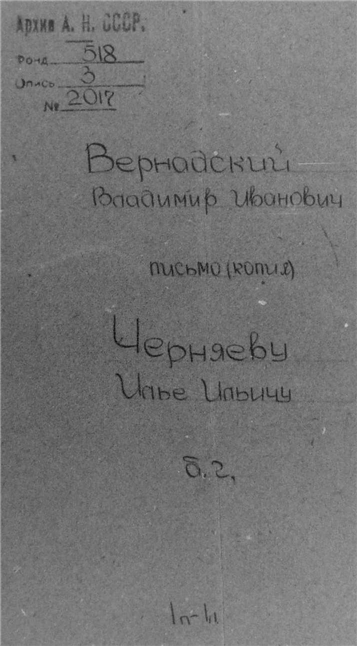 Архив А. Н. СССР.
Фонд 518
Опись 3
№ 2017
Вернадский
Владимир Иванович
письмо (копия)
Черняеву
Илье Ильичу
б. г.